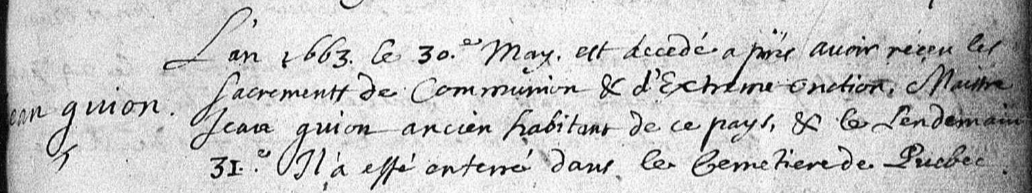 L'an 1663. le 30.e May. est decedé apres avoir réçeu les
Jean guion. Sacrements de Communion & d'Extreme onction, Maistre
Jean guion ancien habitant de ce pays, & le Lendemain
31.e Il a esté enterré dans le Cemetiere de Quebec